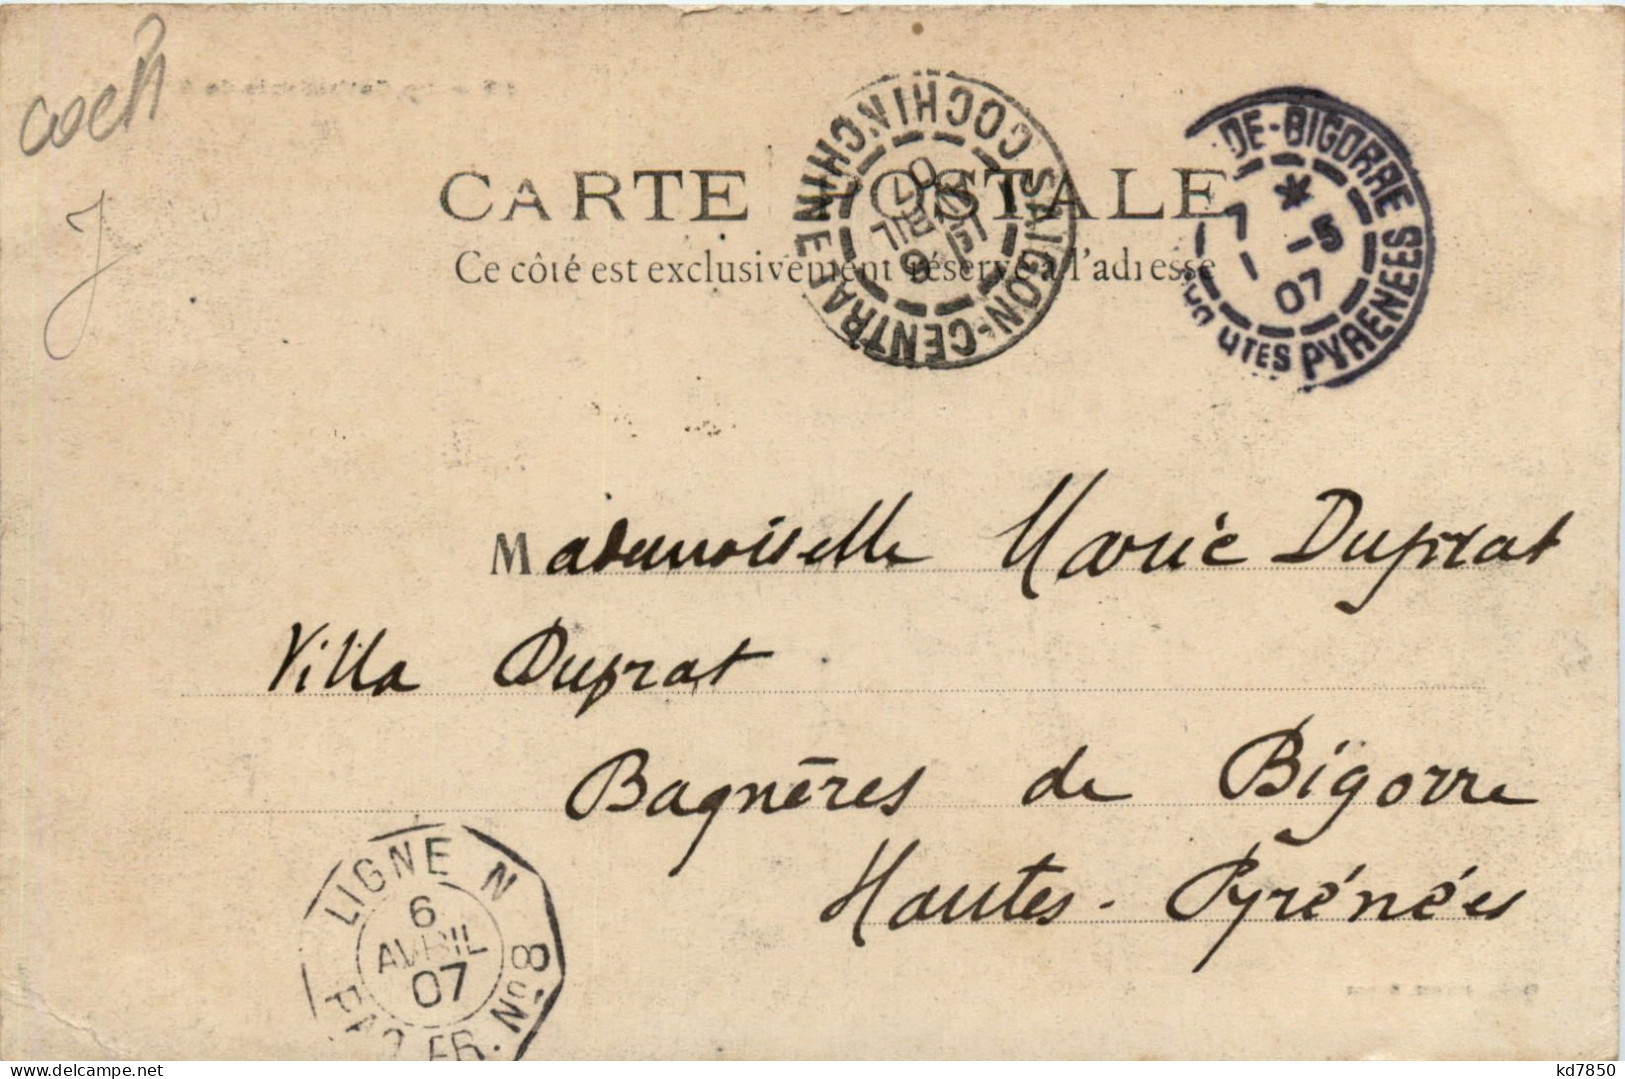 coch
J
CARTE POSTALE
Ce côté est exclusivement réservé à l'adresse
SAIGON-CENTRAL COCHINCHINE
AVRIL
07
DE-BIGORRE
7 - 5
07
HTES PYRENEES
Mademoiselle Marie Duprat
Villa Duprat
Bagnères de Bigorre
Hautes-Pyrénées
LIGNE N
6
AVRIL
07
PAQ. FR. No 8
kd7850